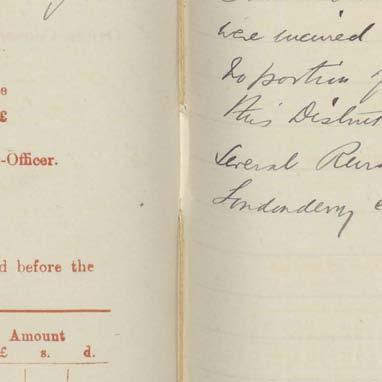 e
£
-Officer.
d before the
Amount
£ s. d.
were incurred
No portion
this District
Several Rura
Londonderry,